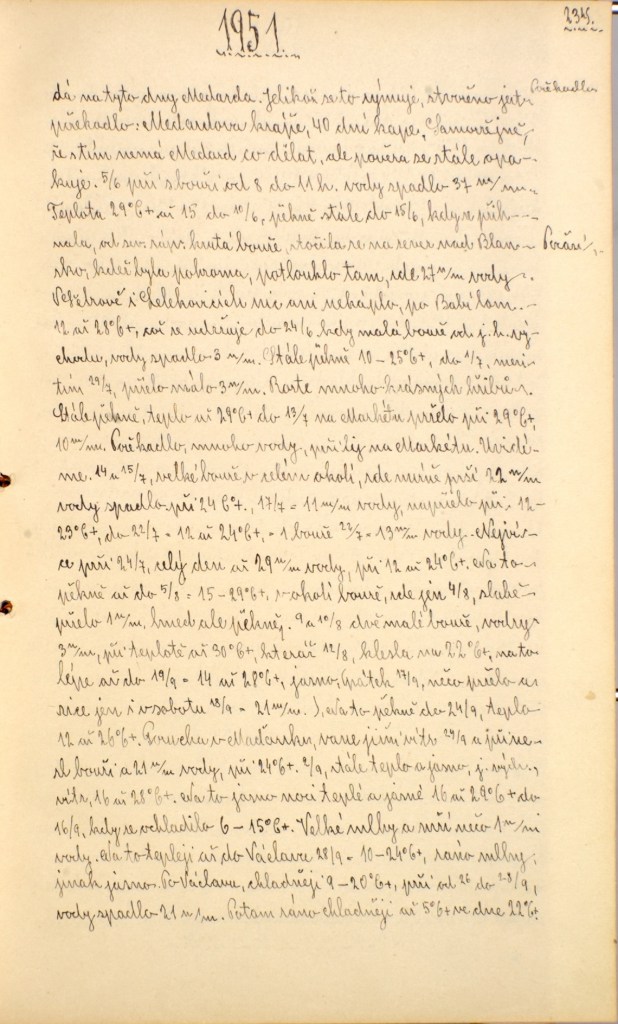 1951
234.
dá na tyto dny Medarda. Jelikož se to rýmuje, stvořeno jest
Pořekadlo
pořekadlo: Medardova krápě, 40 dní kape. Samozřejmě,
že s tím nemá Medard co dělat, ale pověra se stále opa-
kuje. 5/6 při bouři od 8 do 11 h. vody spadlo 37 m/m.
Teplota 29°C+ až 15 do 10/6, pěkně stále do 15/6, kdy se přih-
nala, od sev. záp. krutá bouře, stočila se na sever nad Blan-
Počasí,
sko, kdež byla pohroma, potlouklo tam, zde 27 m/m vody.
i Lelekovicích nic ani nekáplo, po Babí lom.
12 až 28°C+, což se udržuje do 24/6 kdy malá bouře od j. h. vý-
chodu, vody spadlo 3 m/m. Stále pěkně 10-25°C+, do 1/7, mezi-
tím 29/7, pršelo málo 3 m/m. Roste mnoho krásných hřibů.
Stále pěkně, teplo až 29°C+ do 13/7 na Markétu pršelo při 29°C+,
10 m/m. Pořekadlo, mnoho vody, prší-li na Markétu. Uvidí-
me. 14 a 15/7, velké bouře v celém okolí, zde méně prší 22 m/m
vody spadlo při 24°C+, 17/7 = 11 m/m vody, napršelo při 12-
29°C+, do 22/7 = 12 až 24°C+, = 1 bouře 22/7 = 13 m/m vody. Nejví-
ce prší 24/7, celý den až 29 m/m vody, při 12 až 24°C+. Na to
pěkně až do 5/8 = 15-29°C+, v okolí bouře, zde jen 4/8, slabě
pršelo 1 m/m, hned ale pěkněj. 9 a 10/8 dvě malé bouře, vody
3 m/m, při teplotě až 30°C+, kteráž 12/8, klesla na 22°C+, na to
lépe až do 19/9 = 14 až 28°C+, jasno, (pátek 17/9, nečo pršelo a
sice jen i v sobotu 18/9 = 21 m/m.), Na to pěkně do 24/9, teplo
12 až 26°C+. Porucha v Maďarsku, vane jižní vítr 24/9 a přine-
sl bouři a 21 m/m vody, při 24°C+. 2/9, stále teplo a jasno, j. vých.,
vítr, 16 až 28°C+. Na to jasno noci teplé a jasné 16 až 29°C+ do
16/9, kdy se ochladilo 6-15°C+. Velké mlhy a mží nečo 1 m/m
vody. Na to tepleji až do Václava 28/9 = 10-24°C+, ráno mlhy,
jinak jasno. Po Václavu, chladněji 9-20°C+, prší od 26 do 28/9,
vody spadlo 21 m/m. Potom ráno chladněji až 5°C+ ve dne 22°C+